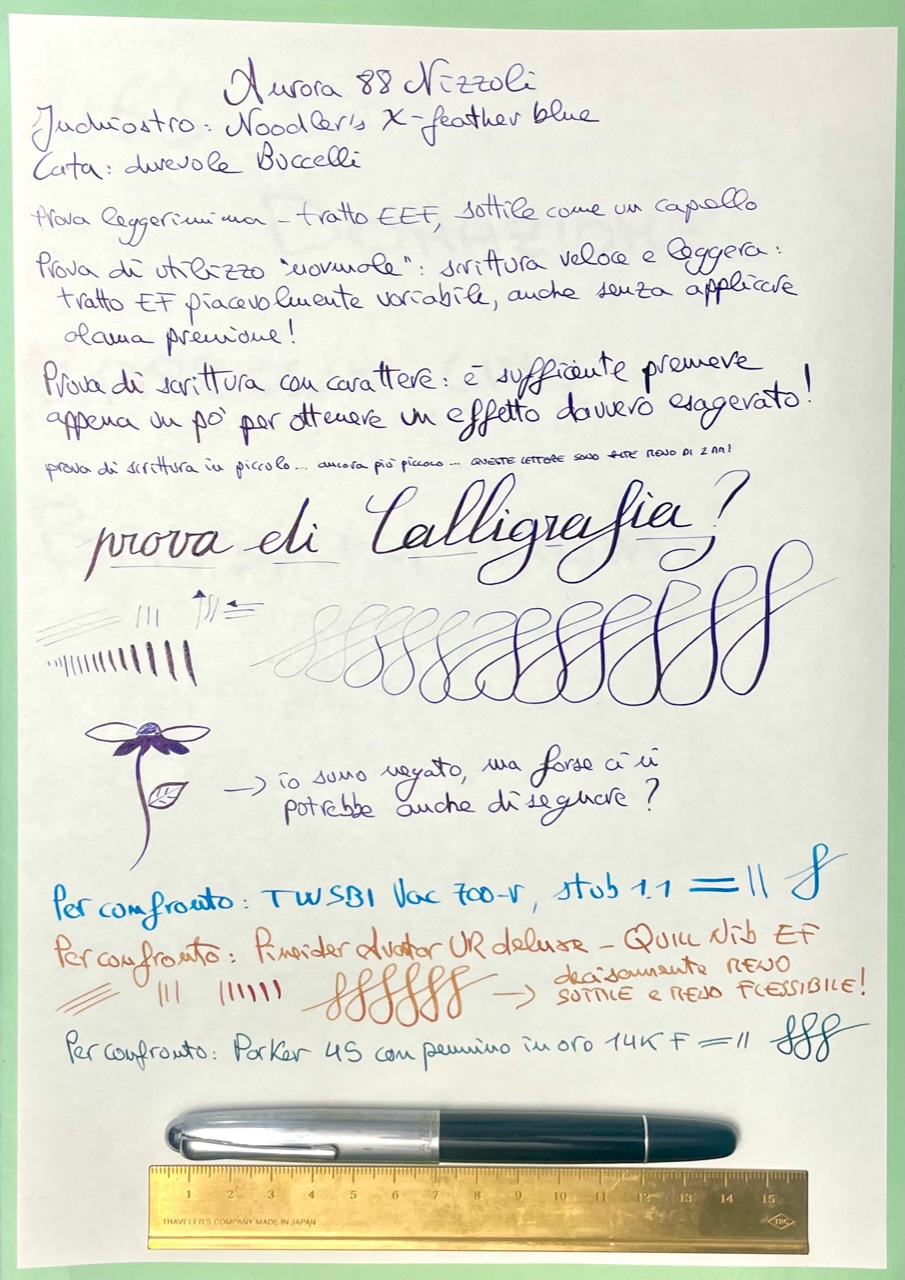 Aurora 88 Nizzoli
Inchiostro: Noodler's X-feather blue
Carta: durevole Buccelli
Prova leggerissima - tratto EEF, sottile come un capello
Prova di utilizzo "normale": scrittura veloce e leggera:
tratto EF piacevolmente variabile, anche senza applicare
alcuna pressione!
Prova di scrittura con carattere: è sufficiente premere
appena un po' per ottenere un effetto davvero esagerato!
prova di scrittura in piccolo... ancora più piccolo... QUESTE LETTERE SONO ALTE MENO DI 2 MM!
prova di Calligrafia?
→ io sono negato, ma forse ci si
potrebbe anche disegnare?
Per confronto: TWSBI Vac 700-r, stub 1.1 = ||
Per confronto: Pineider Avatar UR deluxe - QUILL Nib EF
→ decisamente MENO
SOTTILE e MENO FLESSIBILE!
Per confronto: Parker 45 con pennino in oro 14K F = ||
1 2 3 4 5 6 7 8 9 10 11 12 13 14 15
TRAVELER'S COMPANY MADE IN JAPAN
TRC